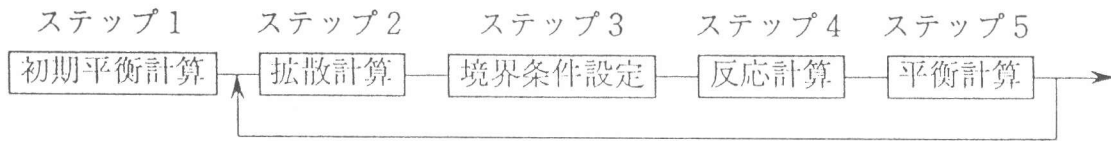 ステップ1 ステップ2 ステップ3 ステップ4 ステップ5
初期平衡計算 拡散計算 境界条件設定 反応計算 平衡計算